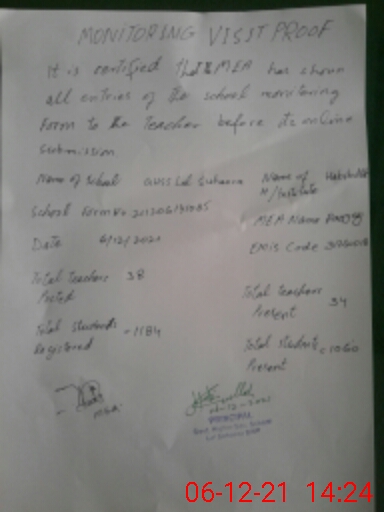 MONITORING VISIT PROOF
It is certified that MEA has shown
all entries of the school monitoring
Form to the Teacher before its online
Submission
Name of School GHSS Lal Name of
H/Institute
School Form No
MEA Name
Date 6/12/2021
EMIS Code
Total teachers 38
Posted
Total teachers
Present 34
Total students = 1184
Registered
Total students = 1060
Present
06-12-2021
PRINCIPAL
06-12-21 14:24